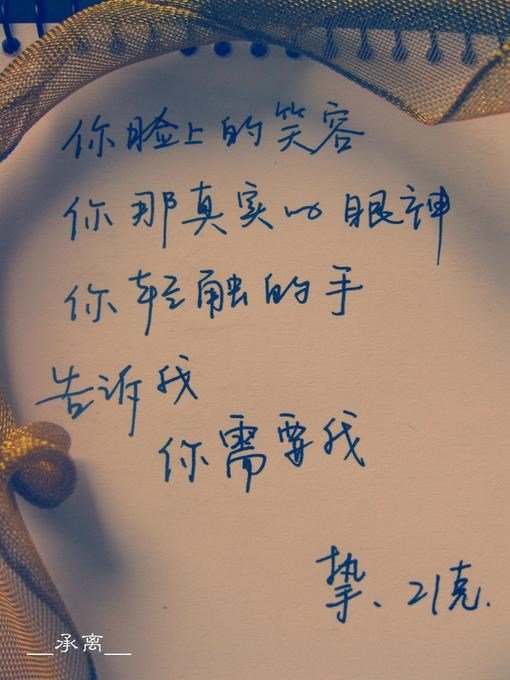 你脸上的笑容
你那真实的眼神
你轻触的手
告诉我
你需要我
挚、21克.
__承离__